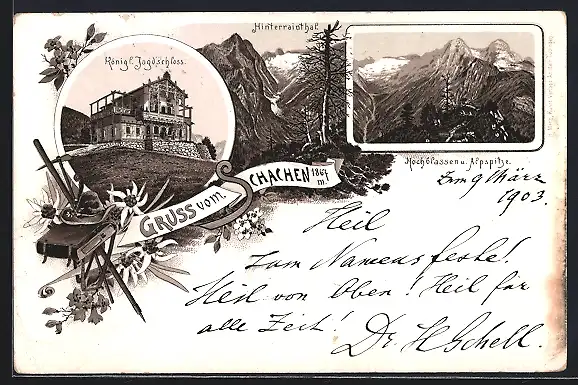 Hinterrainthal.
Königl. Jagdschloss.
Hochblassen u. Alpspitze.
GRUSS vom SCHACHEN 1867 m.
Zum 9 März
1903.
Heil
zum Namensfeste!
Heil von Oben! Heil für
alle Zeit!
Dr. H Schell.